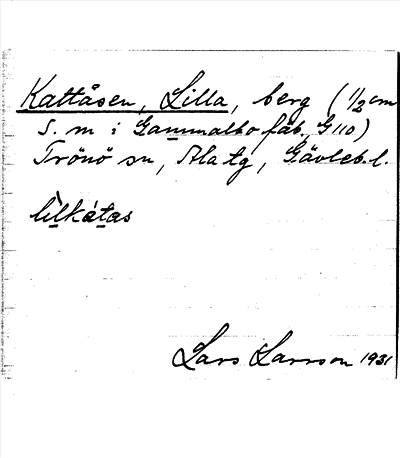 Kattåsen, Lilla, berg (1/2 cm
S. m i Gammalbo fäb. G 110)
Trönö sn, Ala tg, Gävleb.l.
lìlkátas
Lars Larsson 1931